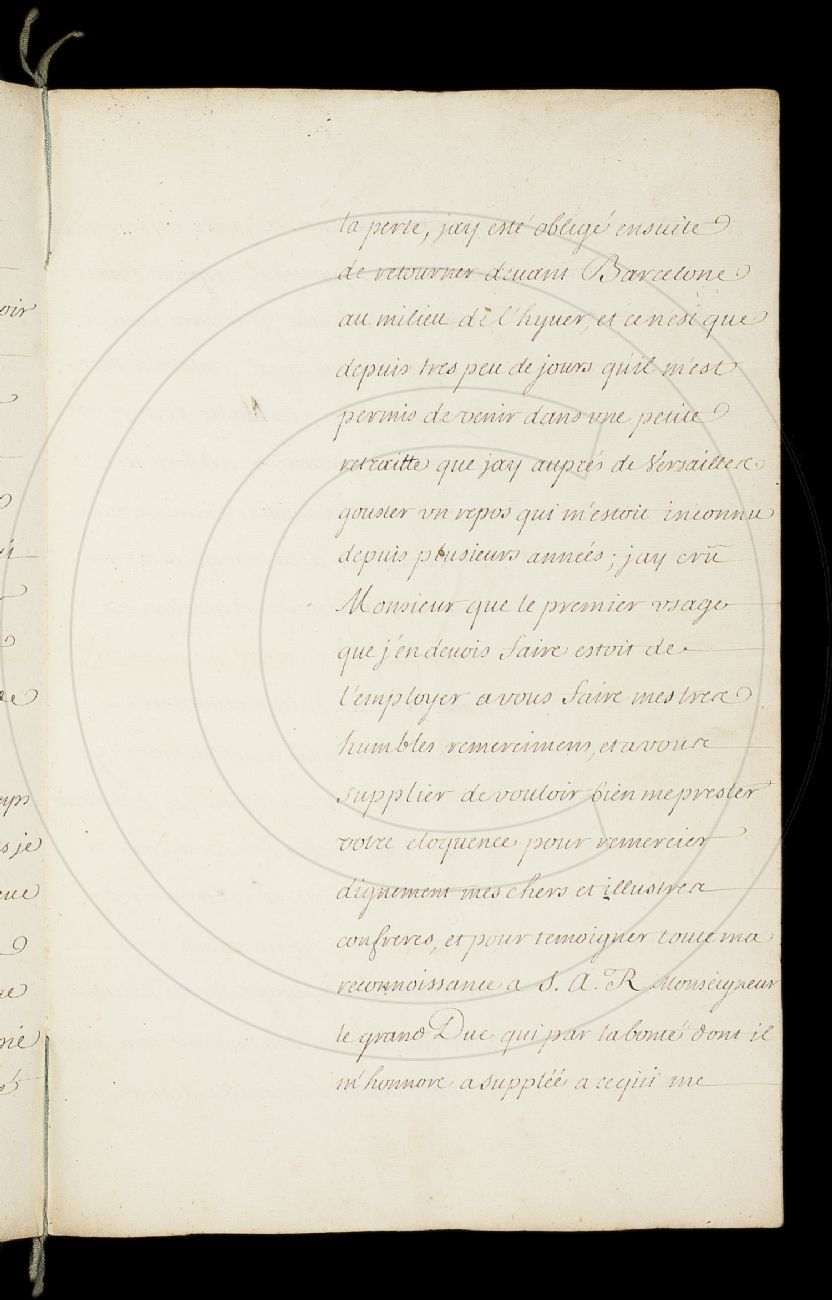 la perte, jay esté obligé ensuite
de retourner deuant Barcelone
au milieu de l'hyuer, et ce n'est que
depuis tres peu de jours qu'il m'est
permis de venir dans vne petite
retraitte que jay auprés de Versailles
gouster vn repos qui m'estoit inconnu
depuis plusieurs années ; jay crû
Monsieur que le premier vsage
que j'en deuois faire estoit de
l'employer a vous faire mes tres
humbles remercimens, et a vous
supplier de vouloir bien me prester
votre eloquence pour remercier
dignement mes chers et illustres
confreres, et pour temoigner toute ma
reconnoissance a S. A. R. Monseigneur
le grand Duc qui par la bonté dont il
m'honnore a suppléé a ce qui me